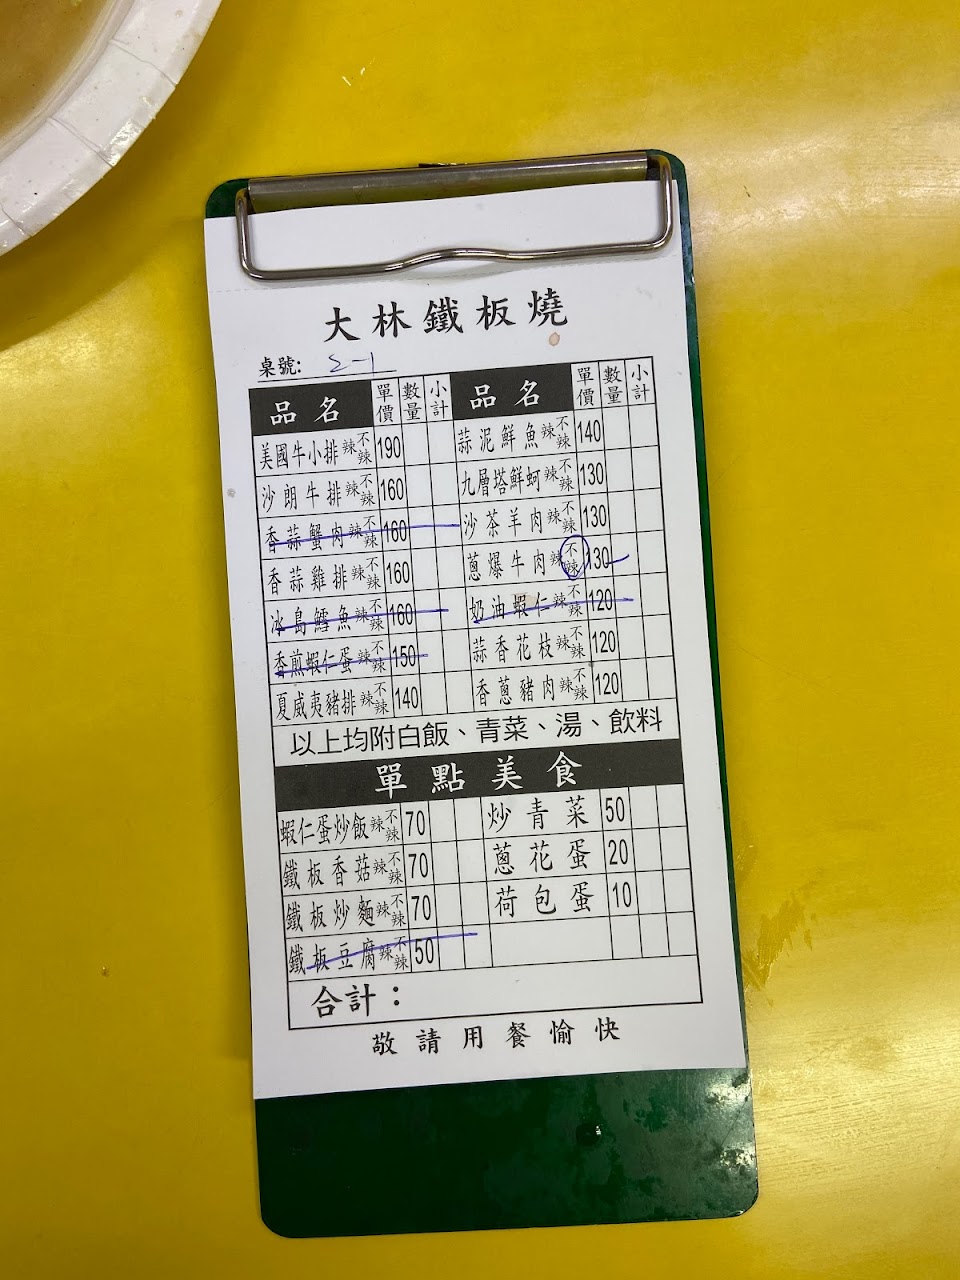 大林鐵板燒
桌號: 2-1
品名 單價 數量 小計 品名 單價 數量 小計
美國牛小排 辣 不辣 190 蒜泥鮮魚 辣 不辣 140
沙朗牛排 辣 不辣 160 九層塔鮮蚵 辣 不辣 130
香蒜蟹肉 辣 不辣 160 沙茶羊肉 辣 不辣 130
香蒜雞排 辣 不辣 160 蔥爆牛肉 辣 不辣 130
冰島鱈魚 辣 不辣 160 奶油蝦仁 辣 不辣 120
香煎蝦仁蛋 辣 不辣 150 蒜香花枝 辣 不辣 120
夏威夷豬排 辣 不辣 140 香蔥豬肉 辣 不辣 120
以上均附白飯、青菜、湯、飲料
單點美食
蝦仁蛋炒飯 辣 不辣 70 炒青菜 50
鐵板香菇 辣 不辣 70 蔥花蛋 20
鐵板炒麵 辣 不辣 70 荷包蛋 10
鐵板豆腐 辣 不辣 50
合計：
敬請用餐愉快